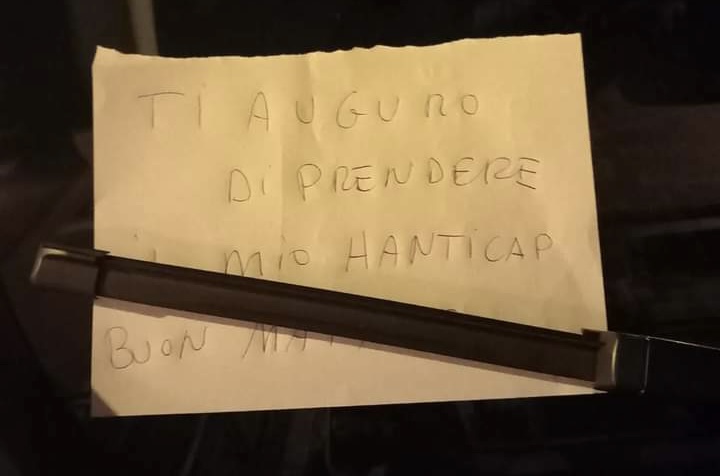 TI AUGURO
DI PRENDERE
IL MIO HANTICAP
BUON